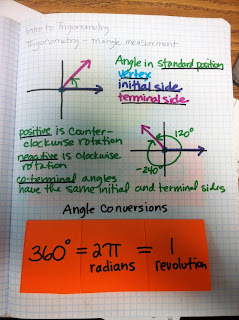 Intro to Trigonometry
Trigonometry - triangle measurement
Angle in standard position
vertex
initial side
terminal side
positive is counter-
clockwise rotation
negative is clockwise
rotation
co-terminal angles
have the same initial and terminal sides
120°
-240°
Angle Conversions
360° = 2π = 1
radians revolution